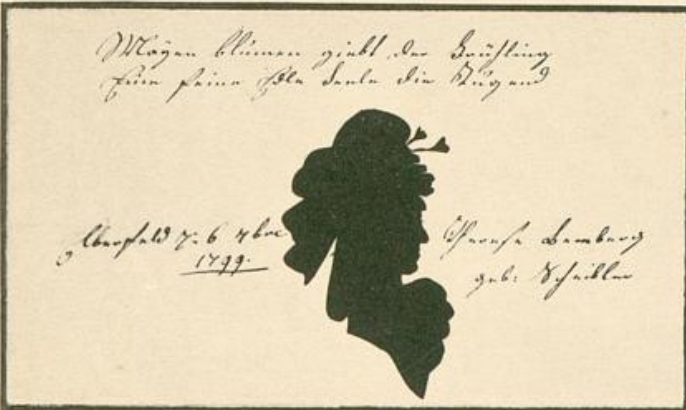 Mayen blumen giebt der Frühling
Eine feine Edle Seele die Tugend
Elberfeld 6 7bre
1799.
Therese Bemberg
geb: Scheibler